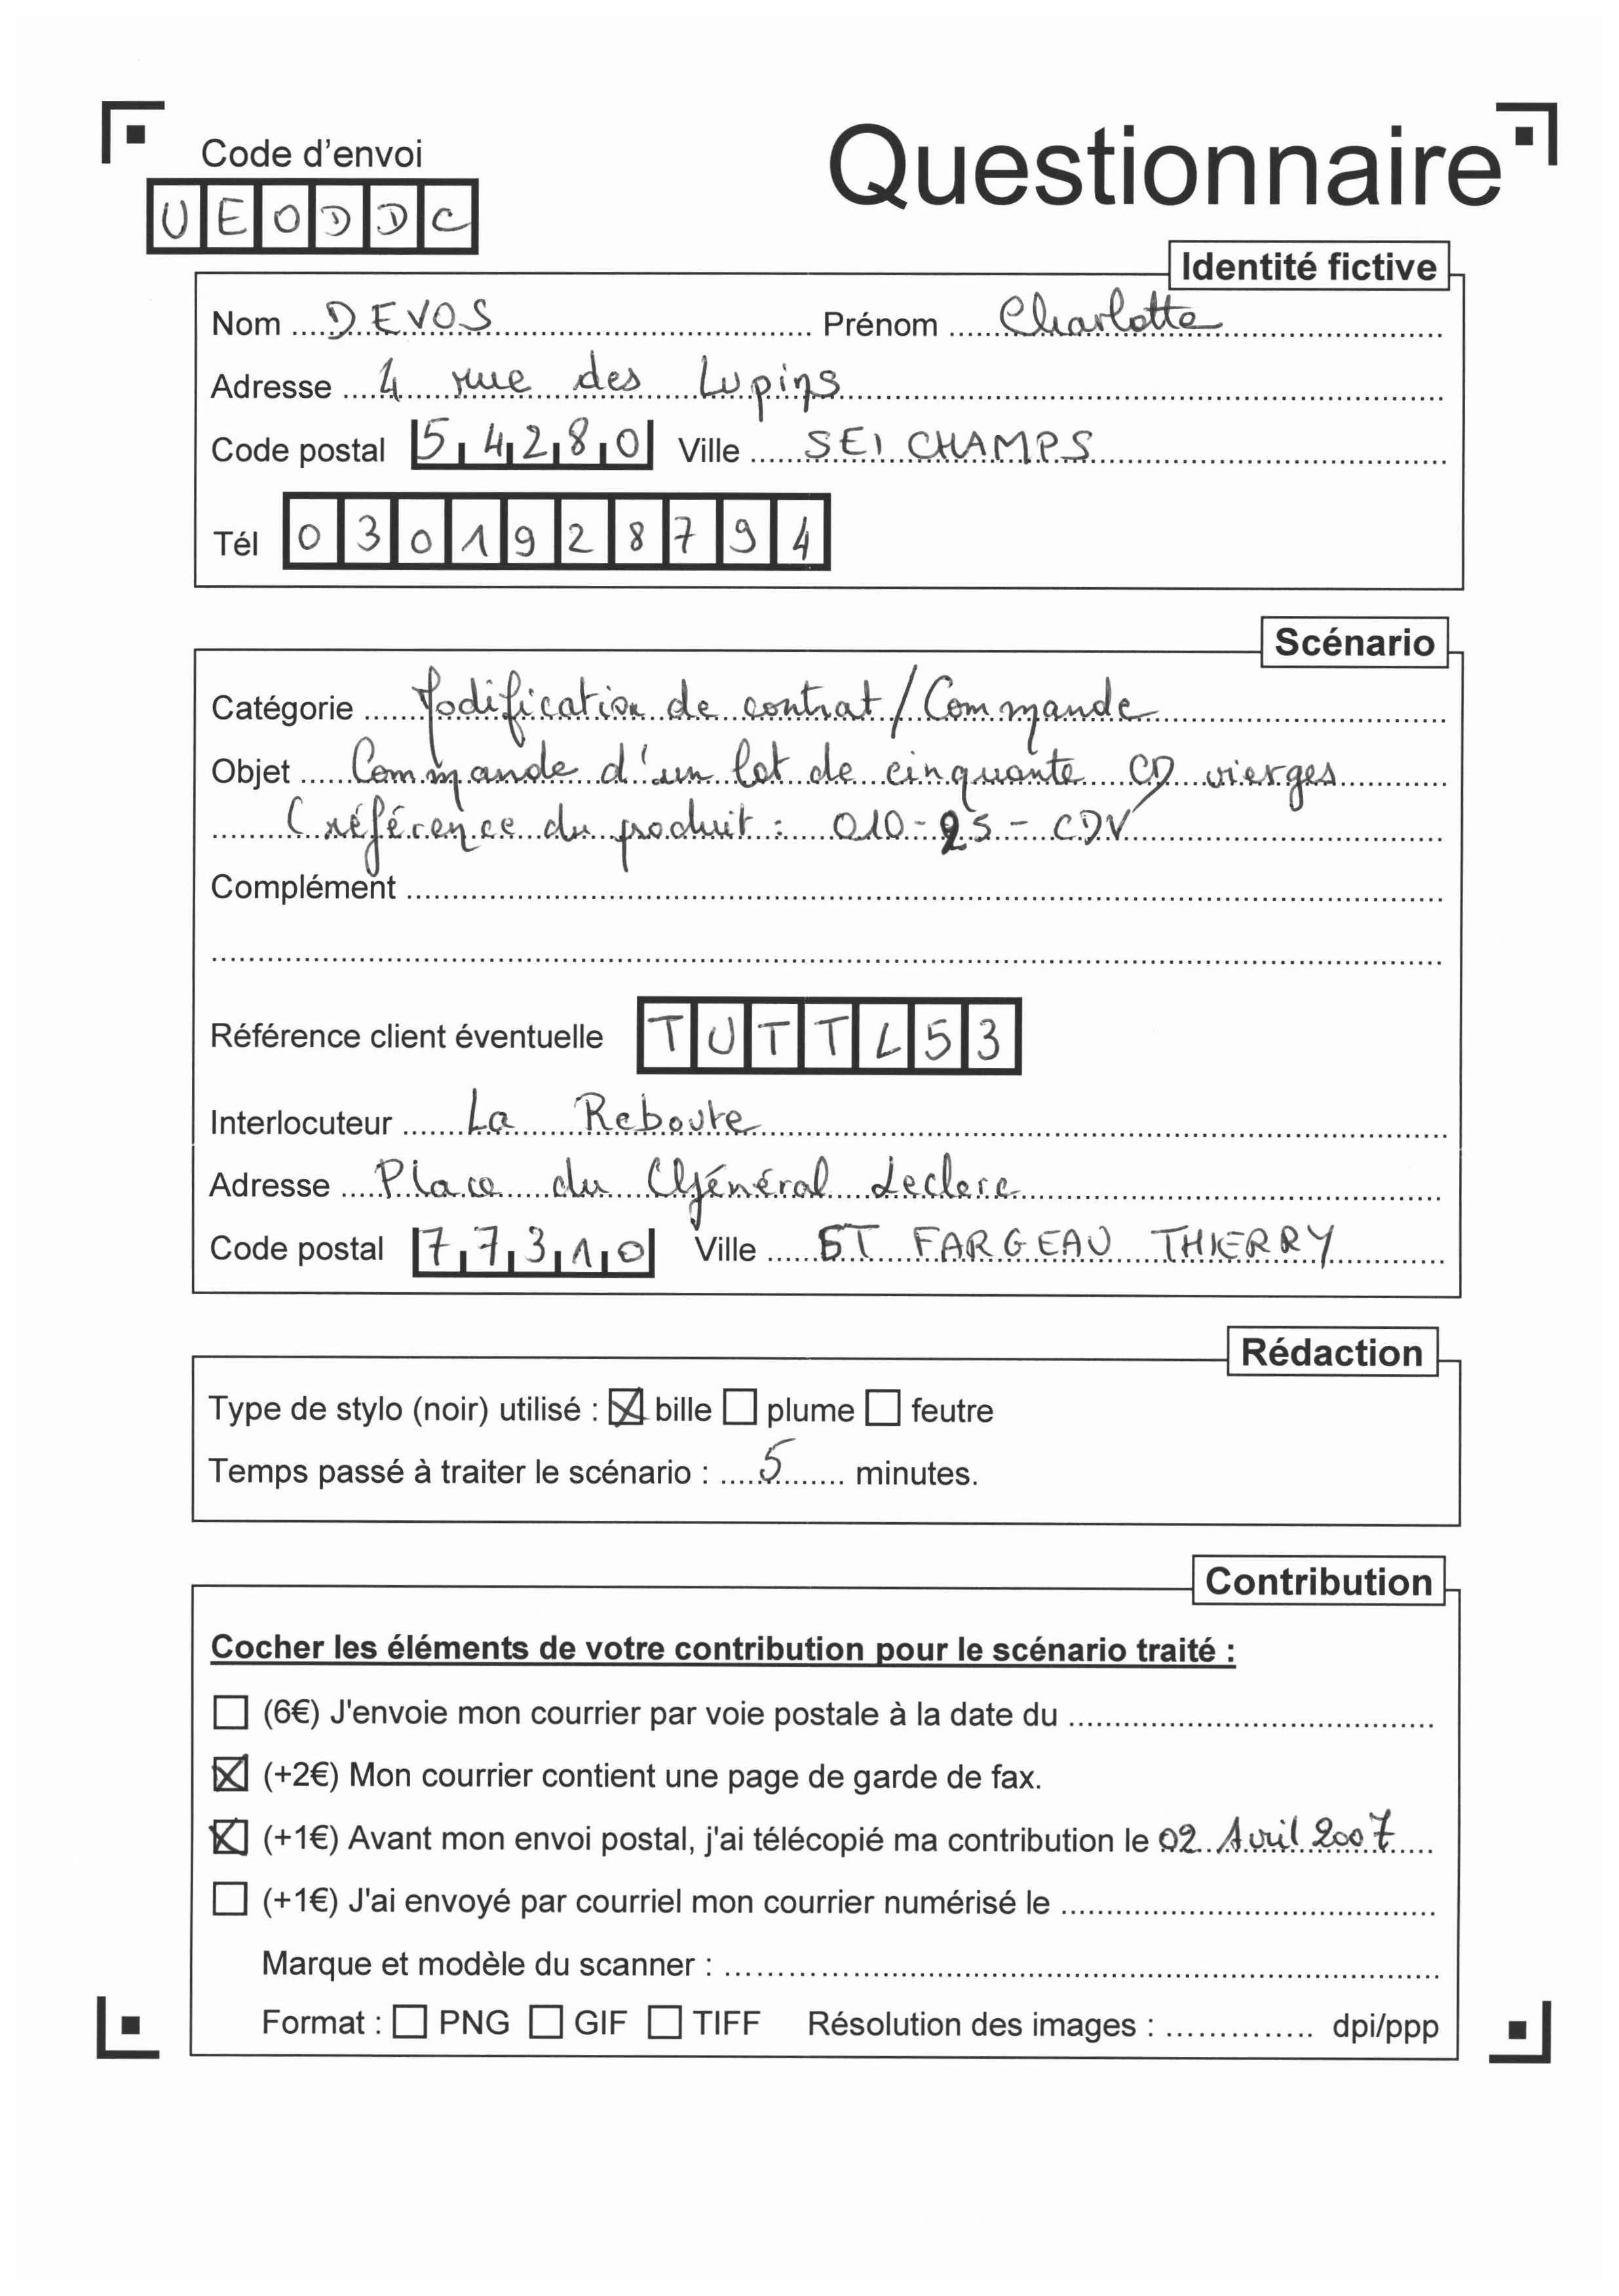 Code d'envoi
Questionnaire
UEODDC
Identité fictive
Nom DEVOS Prénom Charlotte
Adresse 4 rue des Lupins
Code postal 54280 Ville SEICHAMPS
Tél 0301928794
Scénario
Catégorie Modification de contrat / Commande
Objet Commande d'un lot de cinquante CD vierges
(référence du produit : 010-25-CDV
Complément
Référence client éventuelle TUTTL53
Interlocuteur La Reboute
Adresse Place du Général Leclerc
Code postal 77310 Ville ST FARGEAU THIERRY
Rédaction
Type de stylo (noir) utilisé : ☒ bille ☐ plume ☐ feutre
Temps passé à traiter le scénario : 5 minutes.
Contribution
Cocher les éléments de votre contribution pour le scénario traité :
☐ (6€) J'envoie mon courrier par voie postale à la date du
☒ (+2€) Mon courrier contient une page de garde de fax.
☒ (+1€) Avant mon envoi postal, j'ai télécopié ma contribution le 02 Avril 2007
☐ (+1€) J'ai envoyé par courriel mon courrier numérisé le
Marque et modèle du scanner :
Format : ☐ PNG ☐ GIF ☐ TIFF Résolution des images : dpi/ppp